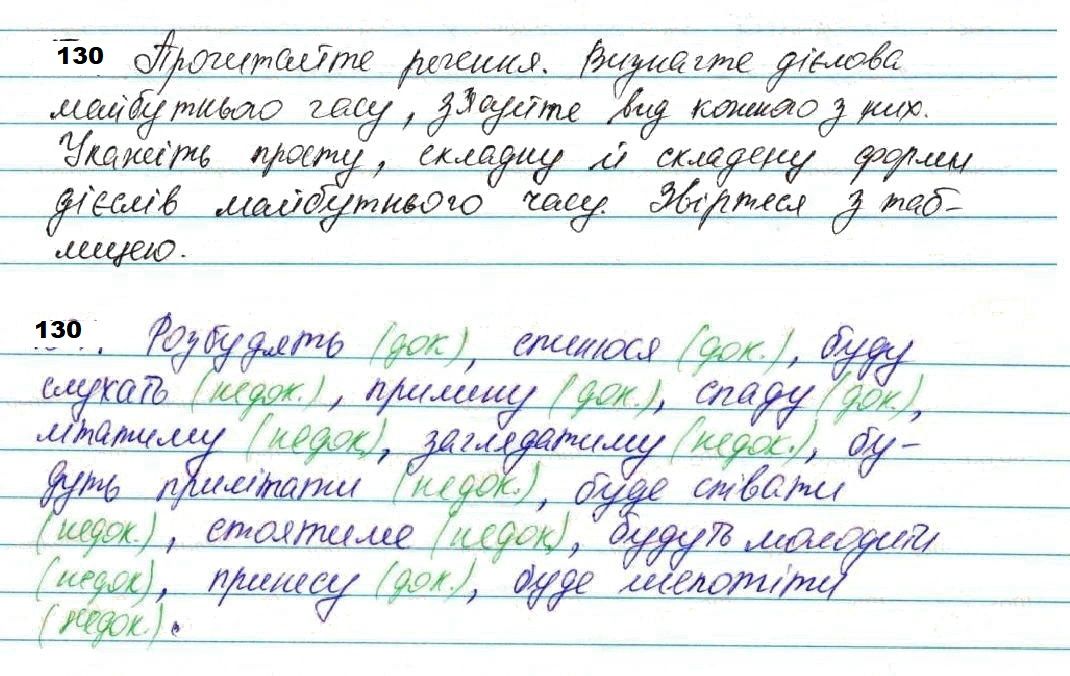 130 Прочитайте речення. Визначте дієлова
майбутнього часу, з'ясуйте вид кожного з них.
Укажіть просту, складну й складену форми
дієслів майбутнього часу. Звіртеся з таб-
лицею.
130 Розбудять (док), спинюся (док.), буду
слухать (недок.), прилину (док.), спаду (док.),
літатиму (недок), заглядатиму (недок.), бу-
дуть прилітати (недок.), буде співати
(недок.), стоятиме (недок), будуть молодити
(недок), принесу (док.), буде шепотіти
(недок.).